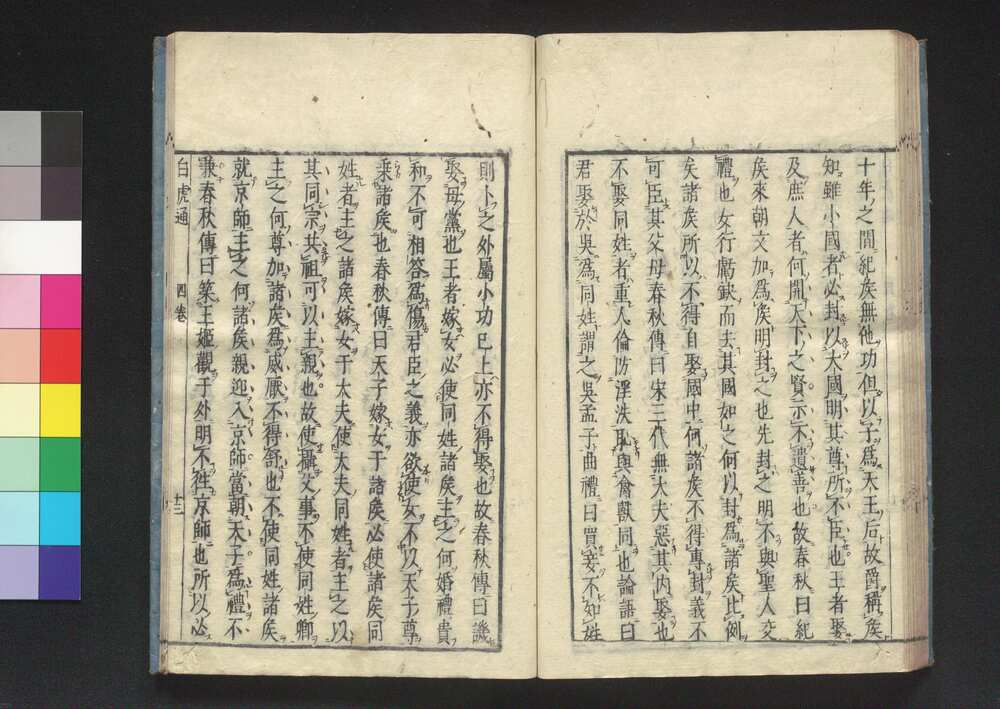 十年之間紀矦無他功但以子爲天王后故爵稱矦
知雖小國者必封以大國明其尊所不臣也王者娶
及庶人者何開天下之賢示不遺善也故春秋曰紀
矦來朝文加爲矦明封之也先封之明不與聖人交
禮也女行虧缺而去其國如之何以封爲諸矦比例
矣諸矦所以不得自娶國中何諸矦不得專封義不
可臣其父母春秋傳曰宋三代無大夫惡其內娶也
不娶同姓者重人倫防淫泆耻與禽獸同也論語曰
君娶於吳爲同姓謂之吳孟子曲禮曰買妾不知姓
則卜之外屬小功已上亦不得娶也故春秋傳曰譏
娶母黨也王者嫁女必使同姓諸矦主之何婚禮貴
和不可相答爲傷君臣之義亦欲使女不以天子尊
乗諸矦也春秋傳曰天子嫁女于諸矦必使諸矦同
姓者主之諸矦嫁女于大夫使大夫同姓者主之以
其同宗共祖可以主親也故使攝父事不使同姓卿
主之何尊加諸矦爲威厭不得舒也不使同姓諸矦
就京師主之何諸矦親迎入京師當朝天子爲禮不
兼春秋傳曰築王姬觀于外明不徃京師也所以必
白虎通 四卷 十三